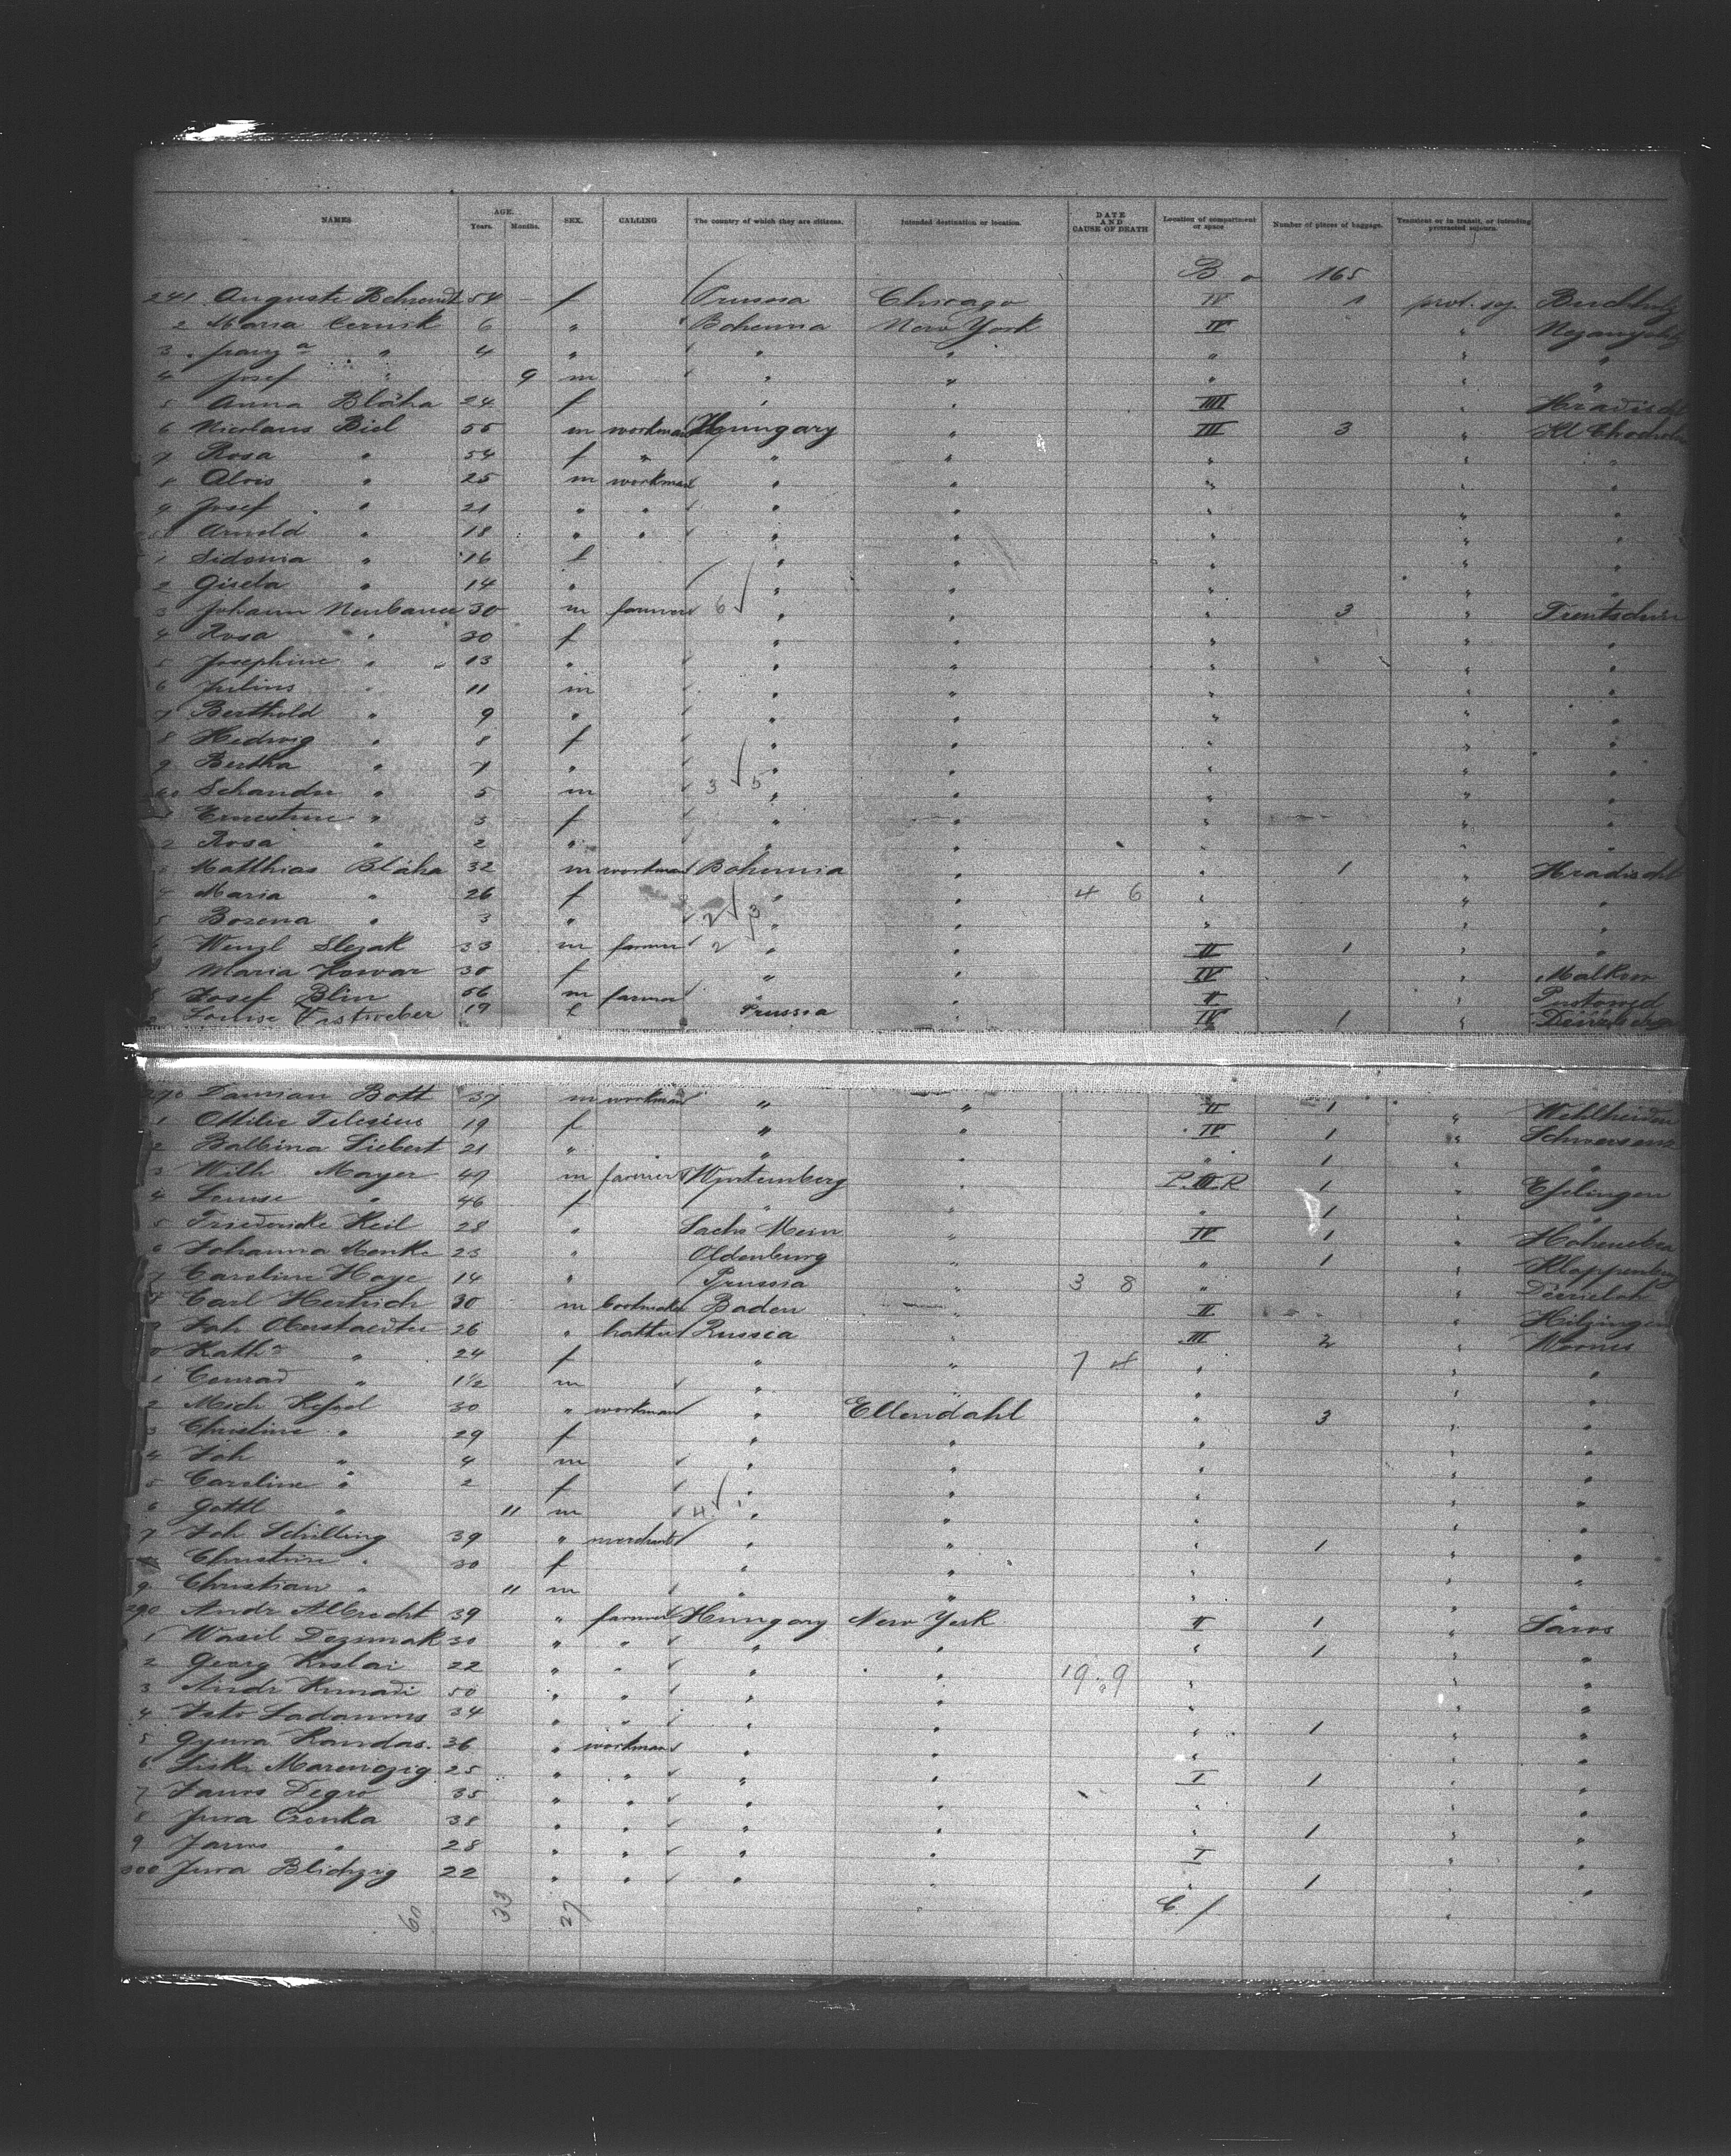 NAMES AGE. Years. Months. SEX. CALLING The country of which they are citizens. Intended destination or location. DATE AND CAUSE OF DEATH Location of compartment or space Number of pieces of baggage. Transient or in transit, or intending protracted sojourn.
B 165
241 Auguste Behrendt 54 – f Prussia Chicago IV 1 prot. soj. Buchholz
2 Maria Cernik 6 " Bohemia New York IV "
3 Franz a " 4 " " " " " "
4 Josef " 9 m " " " " "
5 Anna Bláha 24 f " " IIII " Hradischt
6 Nicolaus Biel 55 m workman Hungary " III 3 "
7 Rosa " 54 f " " " " " "
8 Alois " 25 m workman " " " " "
9 Josef " 21 " " " " " " "
Arnold " 18 " " " " " " "
1 Sidonia " 16 f " " " " "
2 Gisela " 14 " " " " " "
3 Johann Neubauer 30 m farmer 6 " " " 3 " Trentschin
4 Rosa " 30 f " " " " "
5 Josephine " 13 " " " " " "
6 Julius " 11 m " " " " "
7 Berthold " 9 " " " " " "
8 Hedwig " 8 f " " " " "
9 Bertha " 7 " " " " " "
60 Schandor " 5 m 3 5 " " " " "
1 Ernestine " 3 f " " " " "
2 Rosa " 2 " " " " " "
3 Matthias Bláha 32 m workman Bohemia " " 1 " Hradischt
4 Maria " 26 f " " 4 6 " " "
5 Bozena " 3 " 2 3 " " " " "
6 Wenzl Slezak 33 m farmer 2 " " II 1 " "
Maria Kovar 30 f " " IV " Malkow
8 Josef Blin 56 m farmer " " II "
Louise 19 f Prussia " IV 1 "
270 Damian Bott 37 m workman " " II 1 " Wehlheiden
1 Ottilie Telesius 19 f " " IV 1 " Schwersenz
2 Balbina Liebert 21 " " " " 1 " "
3 Wilh. Mayer 47 m farmer Wurtemberg " P.III.R 1 " Esslingen
4 Louise " 46 f " " " 1 " "
5 Friedericke Keil 28 " Sachs Mein " IV 1 "
6 Johanna Menke 23 " Oldenburg " " 1 " Kloppenburg
7 Caroline Hoye 14 " Prussia " 3 8 " "
8 Carl Hertrich 30 m bootmaker Baden " II " Hilzingen
9 Joh Oberstaedter 26 " hatter Russia " III 2 " Worms
0 Kath a " 24 f " " 7 4 " " "
1 Conrad " 1½ m " " " " "
2 Mich Kessel 30 " workman " Ellendahl " 3 " "
3 Christine " 29 f " " " " "
4 Joh " 4 m " " " " "
5 Caroline " 2 f " " " " "
6 Gottl " 11 m 4 " " " " "
7 Joh Schilling 39 " merchant " " " 1 " "
8 Christine " 30 f " " " " "
9 Christian " 11 m " " " " "
290 Andr Albrecht 39 " farmer Hungary New York II 1 " Saros
1 Wasil Dezimak 30 " " " " " 1 " "
2 Georg Koslai 22 " " " " 19 9 " " "
3 Andr 50 " " " " " " "
4 Feto Ladanyus 34 " " " " " 1 " "
5 Gyura Kandas. 36 " workman " " " " "
6 25 " " " " I 1 " "
7 Janos Degro 35 " " " " " " "
8 Jura Czonka 38 " " " " " 1 " "
9 Janos " 28 " " " " I " "
300 Jura 22 " " " " " 1 " "
60 33 27 C /